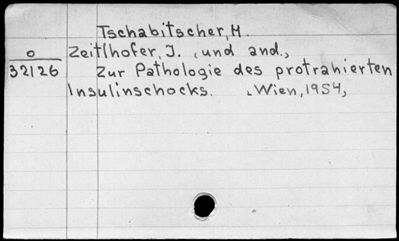 Tschabitscher, H.
o Zeitlhofer, J. , und and.,
32126 Zur Pathologie des protrahierten
Insulinschocks. , Wien, 1954,